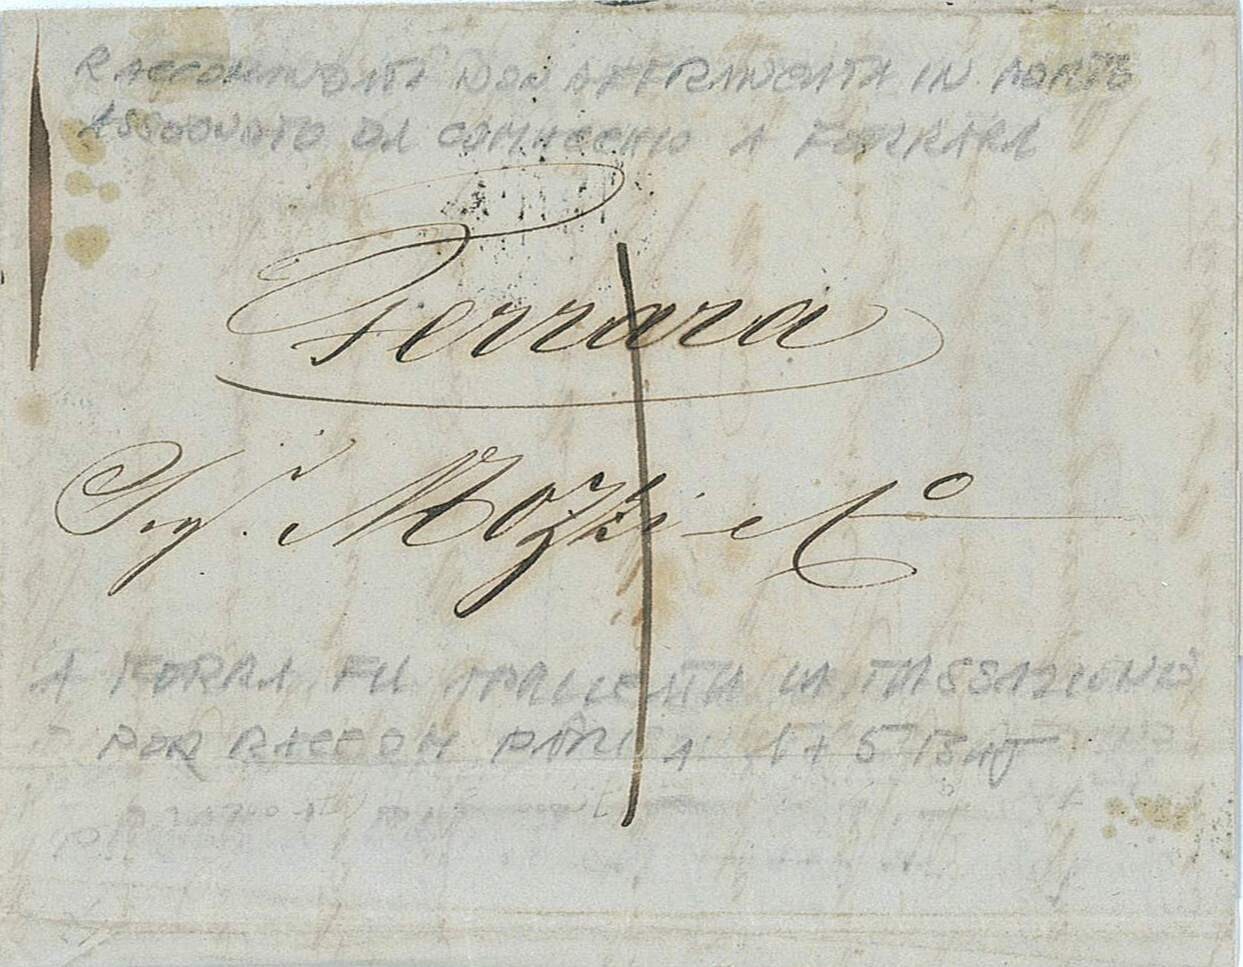 RACCOMANDATA NON AFFRANCATA IN PORTO
ASSEGNATO DA COMACCHIO A FERRARA
Ferrara
Sig.ri Mozzi e C.o
A FERRA FU APPLICATA LA TASSAZIONE
PER RACCOM PARI A 1+5 BAJ